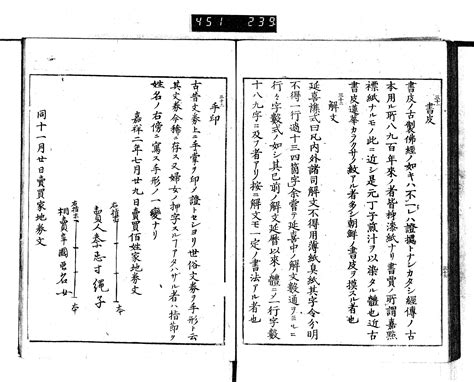 451 239
書皮
書皮ノ古製佛經ノ如キハ不レ〻證據トナシカタシ經傳ノ古
本用ル所八九百年來ノ者皆柹漆紙ナリ書賈ノ所謂嘉點
標紙ナルモノ此ニ近シ是元丁子煎汁ヲ以染タル體也近古
書皮蓮華カラクサリノ紋アル者多シ朝鮮ノ書皮ヲ摸スル者也
解文
延喜樣式曰凡内外諸司解文不得用薄紙臭紙其字令分明
不得一行過十三四箇字余嘗テ延喜中ノ解文數通ヲミルニ
行々字數式ノ如シ其已前ノ解文延曆以來ノ體ニ一行字數
十八九字ニ及フ者アリ按ニ解文モ一定ノ書法アル者也
手印
古昔文券上ニ手掌ヲ印ノ證トセシヨリ世俗文券ヲ手形ト云
其文券今稀ニ存ス又婦女ノ押字スルコアタハサル者ハ指印ヲ
姓名ノ右傍ニ寫ス手形ノ一變ナリ
嘉祥二年七月廿九日賣買佰姓家地券文
右指末 本
賣人秦忌寸繩子
右指末 本
相賣
同十一月廿日賣買家地券文